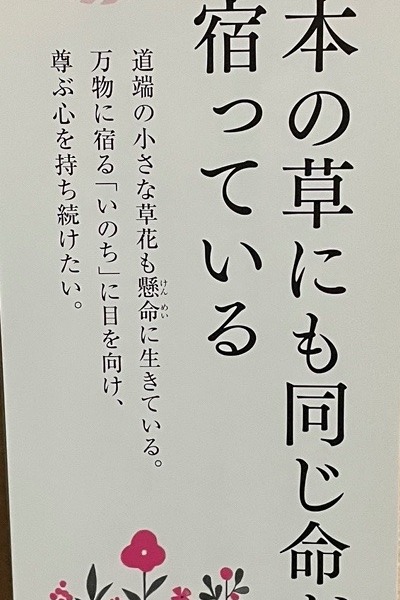 本の草にも同じ命が
宿っている
道端の小さな草花も懸命に生きている。
けんめい
万物に宿る「いのち」に目を向け、
尊ぶ心を持ち続けたい。